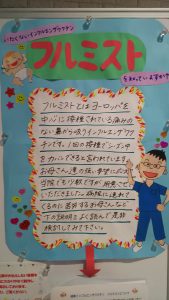 いたくないインフルエンザワクチン
フルミスト
を知っていますか？
フルミストとはヨーロッパを
中心に接種されている痛みの
ない鼻から吸うインフルエンザワク
チンです。1回の接種で1シーズン中
をカバーできると言われています。
お母さん達の強い要望に応え
当院でも少数ですが用意させて
いただきました。病院に連れて
くるのに苦労するお母さんなど
下の説明をよく読んで是非
検討してみて下さい。